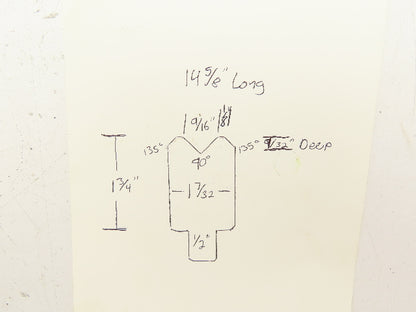 14 5/8" Long
9/16" 1/8"
135° 135° 9/32" Deep
90°
1 3/4"
1 3/32
1/2"